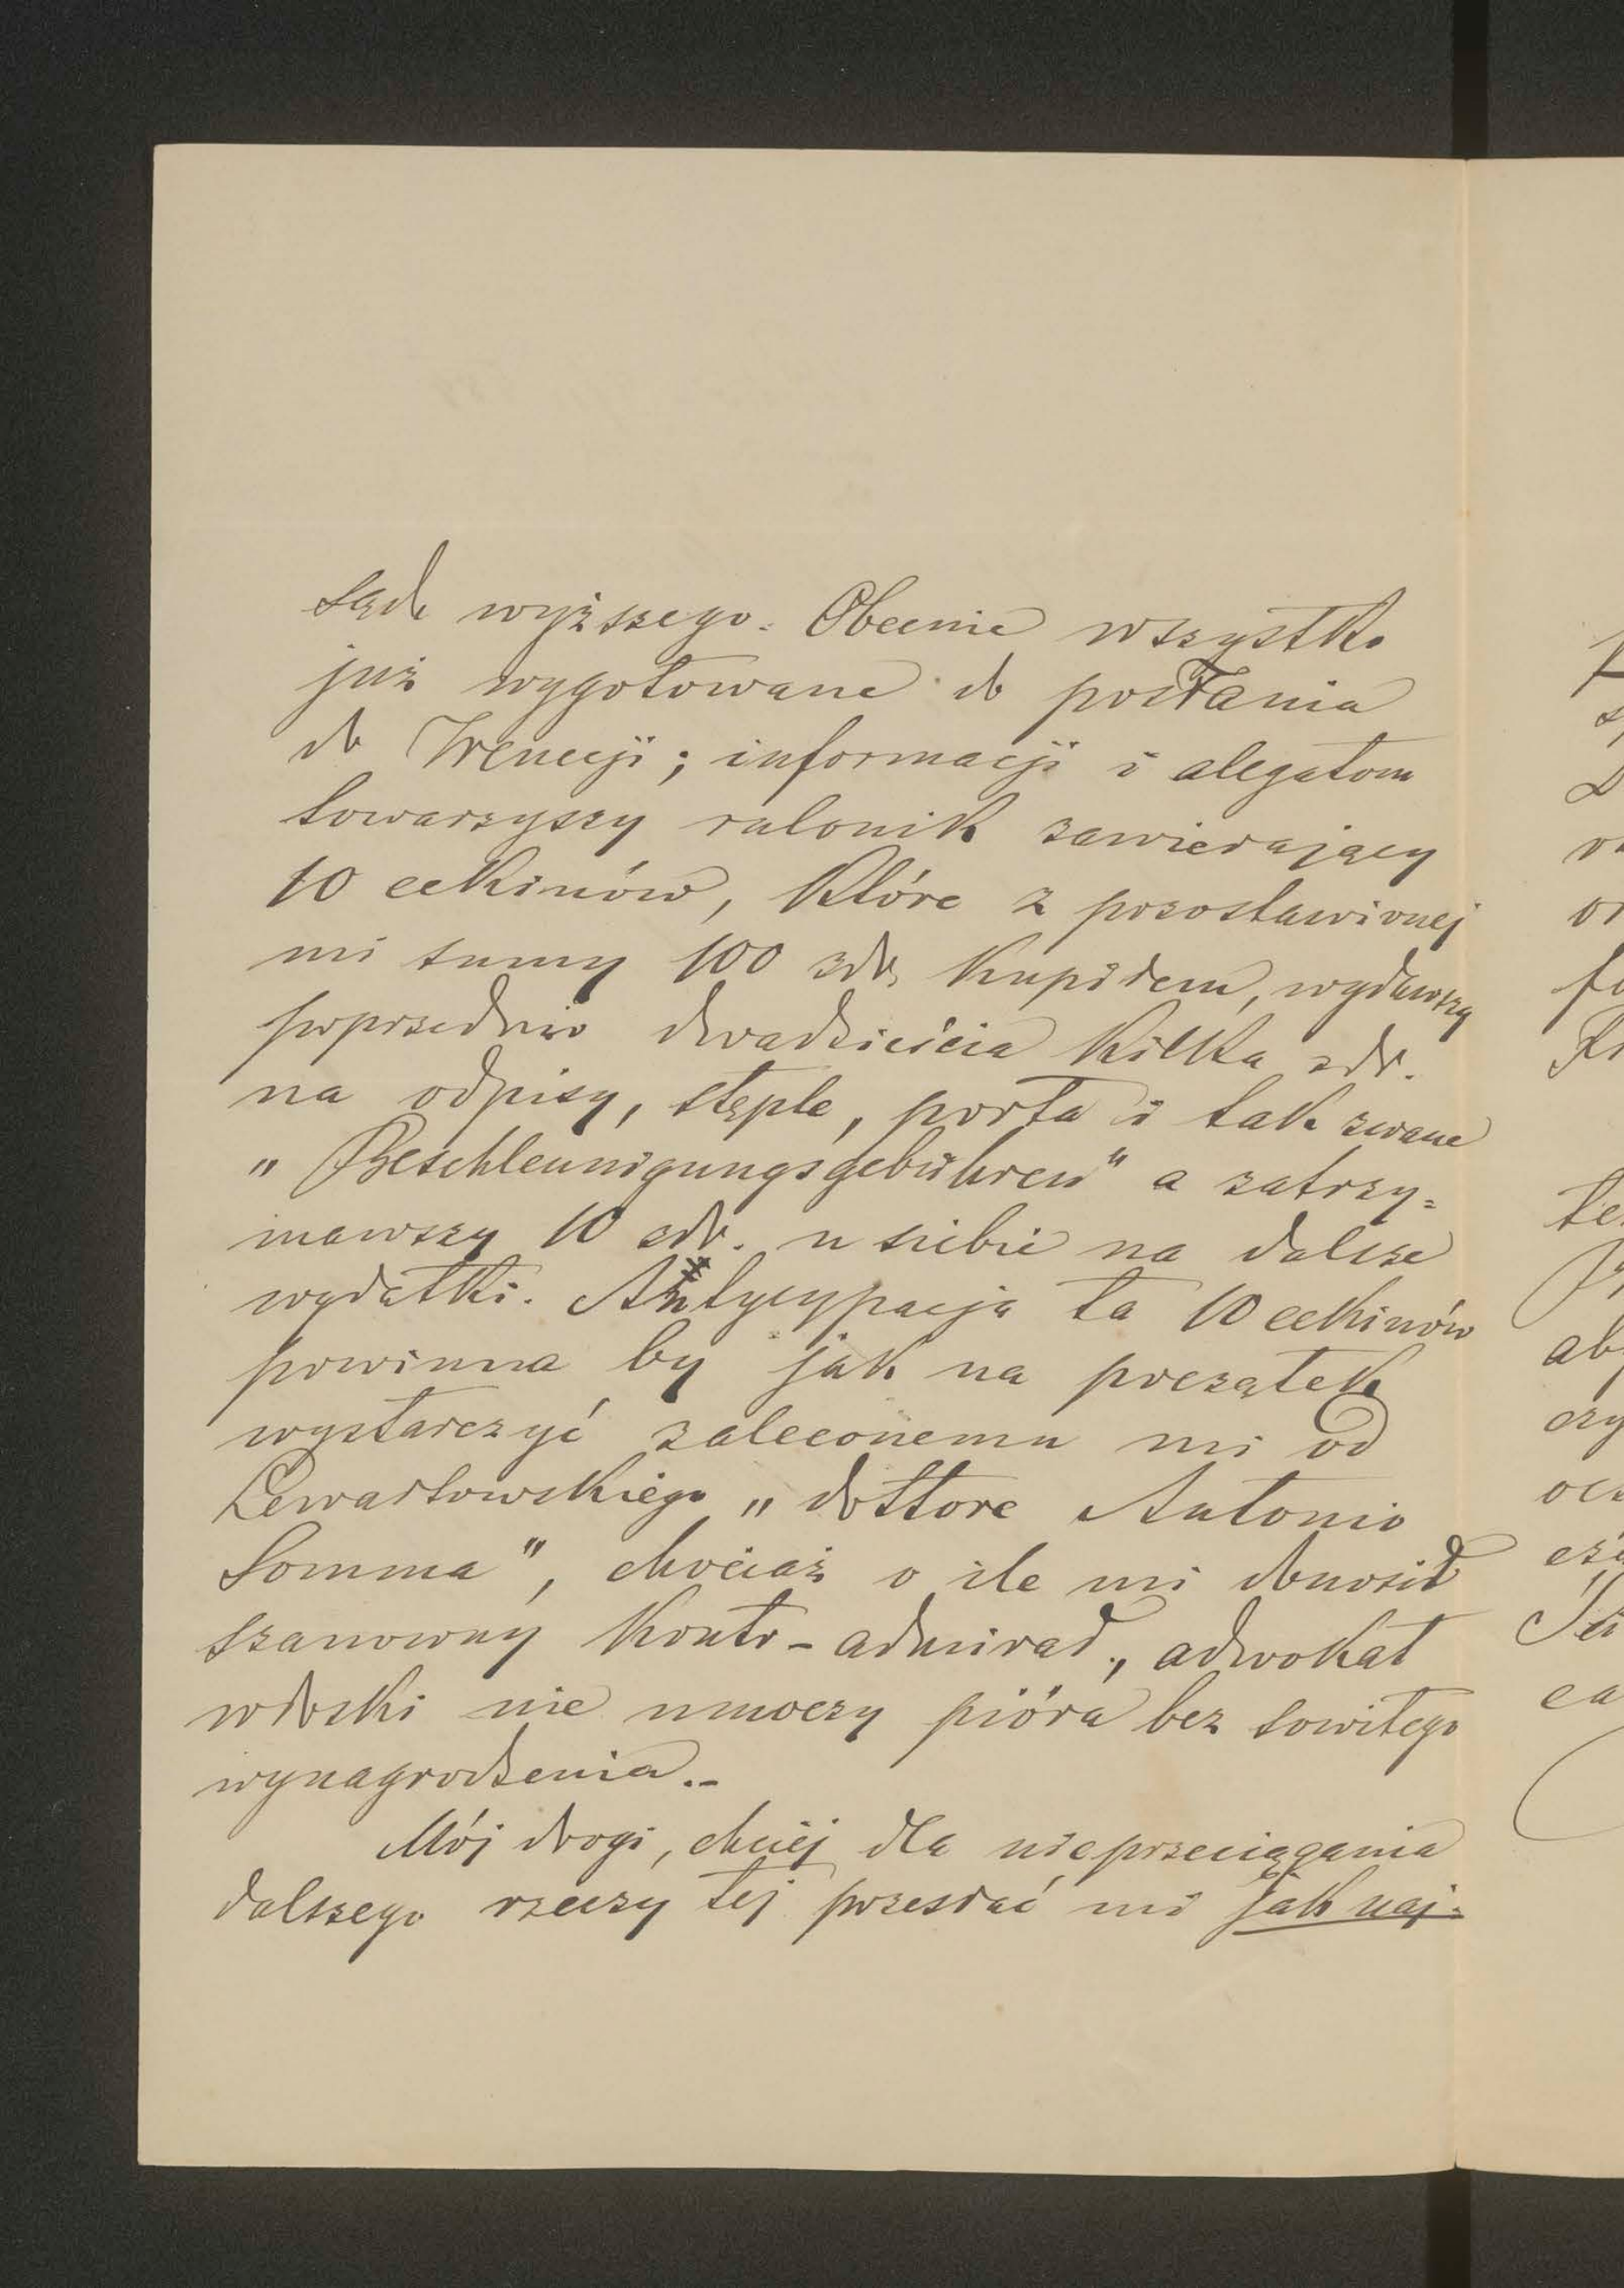 sądu wyższego. Obecnie wszystko
już wygotowane do posłania
do Wenecji; informacji i alegatom
towarzyszy rulonik zawierający
10 cekinów, które z pozostawionej
mi sumy 100 złr. kupiłem, wydawszy
poprzednio dwadzieścia kilka złr.
na odpisy, stęple, porta i tak zwane
„Beschleunigungsgebühren" a zatrzy=
mawszy 10 złr. u siebie na dalsze
wydatki. Antycypacja ta 10 cekinów
powinna by jak na początek
wystarczyć zaleconemu mi od
Lewartowskiego „dottore Antonio
Somma", chociaż o ile mi donosił
szanowny kontr-admirał, adwokat
włoski nie umoczy pióra bez sowitego
wynagrodzenia.-
Mój drogi, chciej dla nieprzeciągania
dalszego rzeczy tej przesłać mi jak naj-